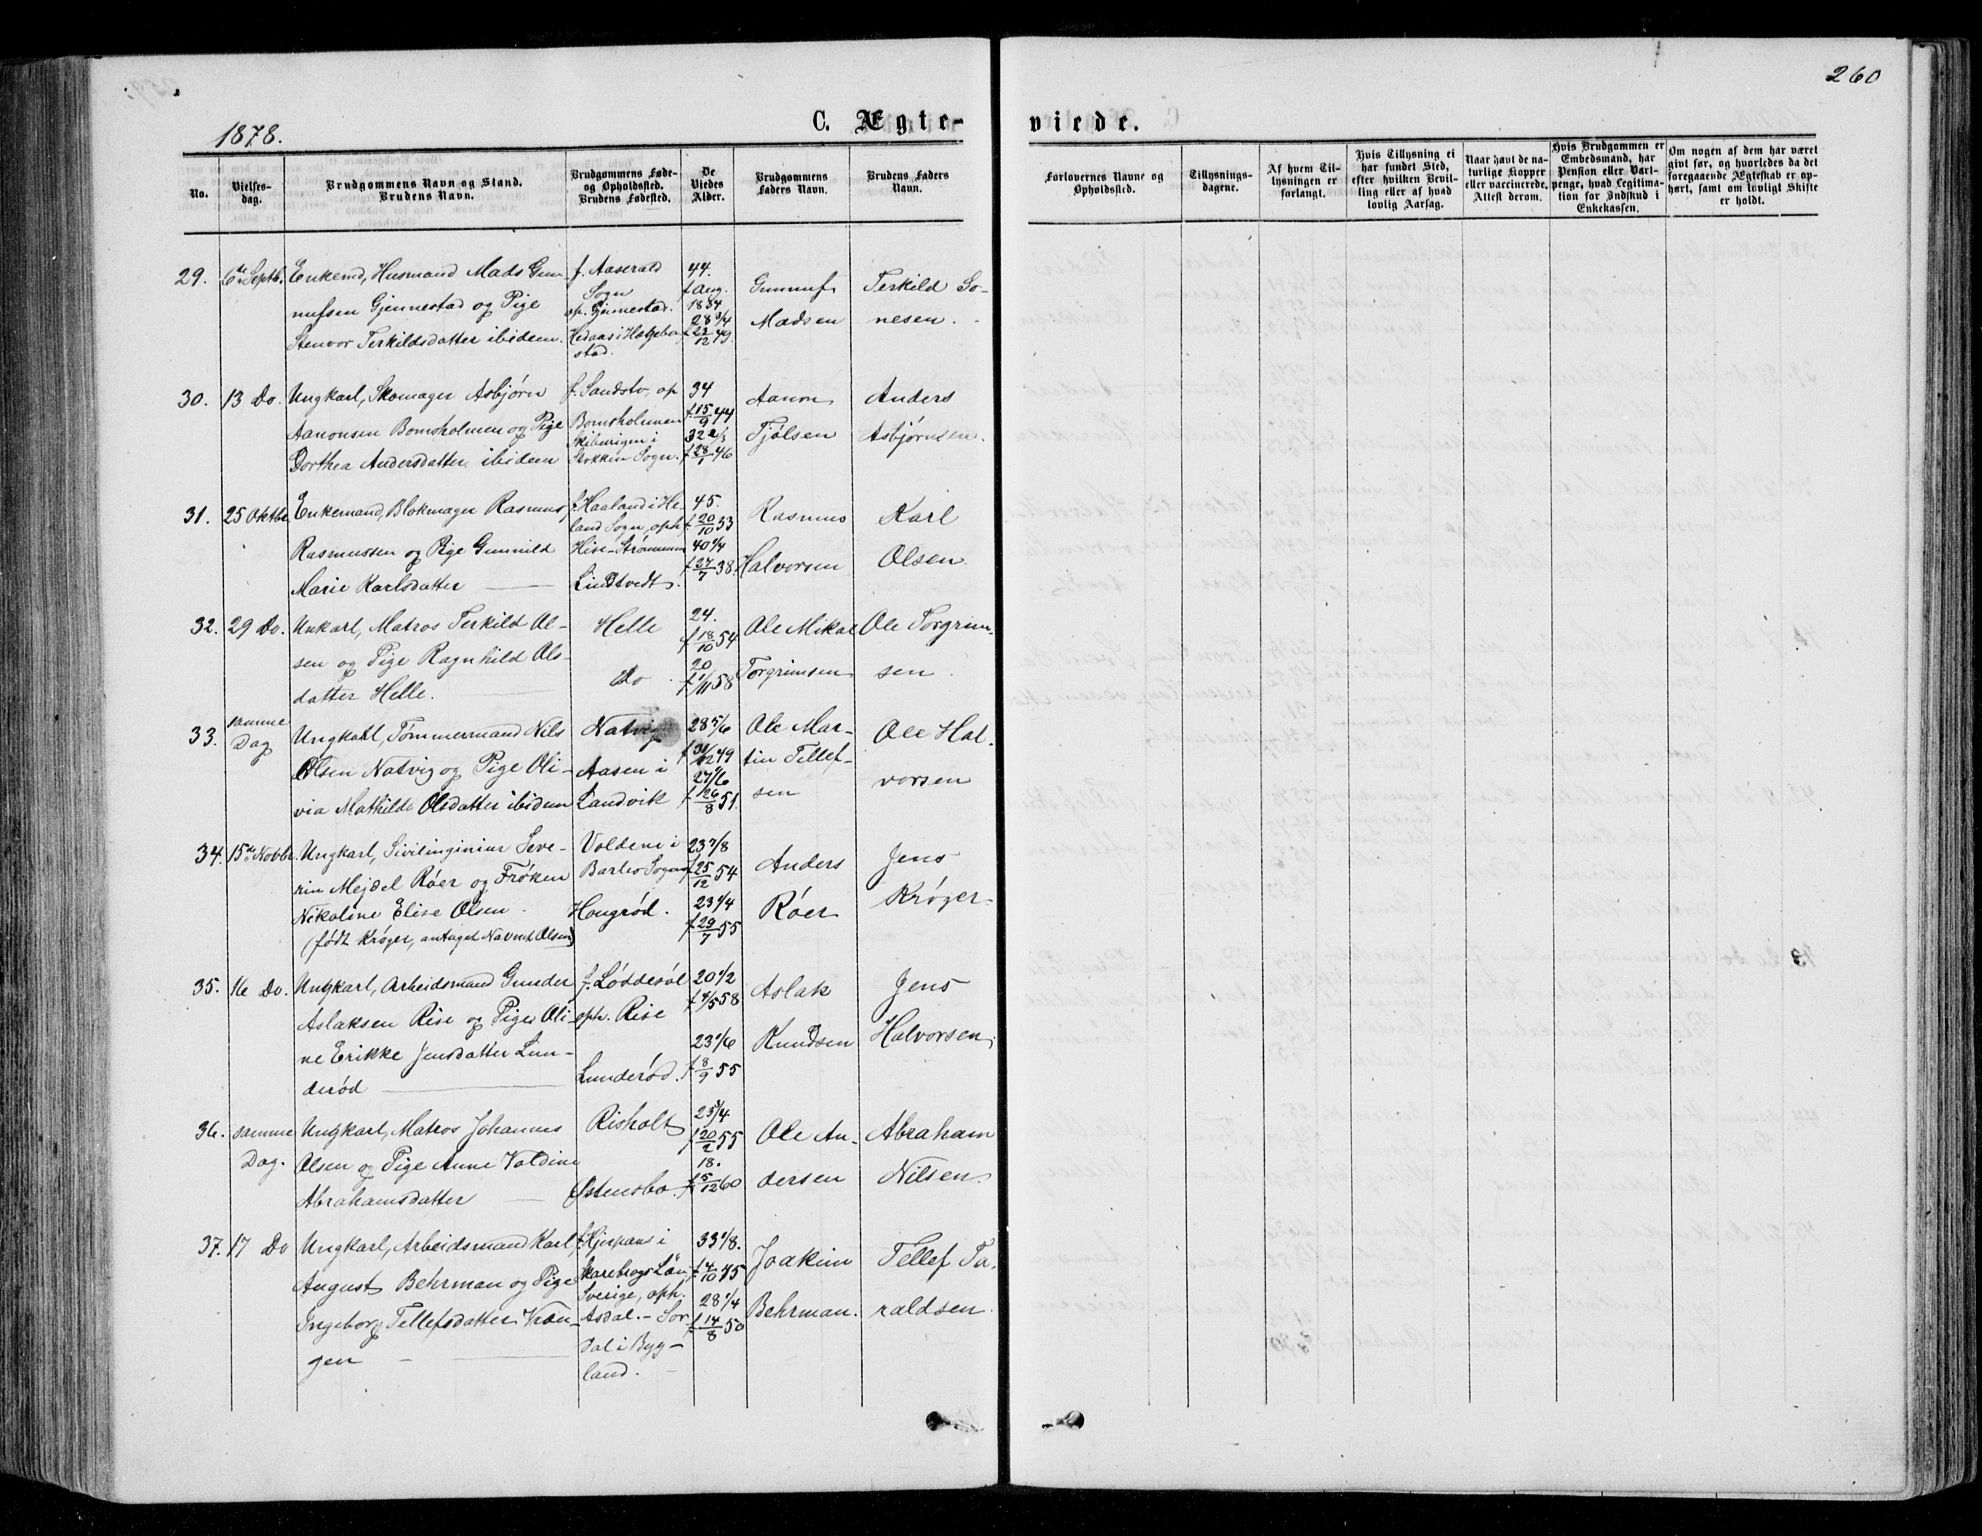 260
1878.
C. Ægte-
viede.
No.
Vielses-
dag.
Brudgommens Navn og Stand.
Brudens Navn.
Brudgommens Føde-
og Opholdssted.
Brudens Fødested.
De
Viedes
Alder.
Brudgommens
Faders Navn.
Brudens Faders
Navn.
Forlovernes Navne og
Opholdssted.
Tillysnings-
dagene.
Af hvem Til-
lysningen er
forlangt.
Hvis Tillysning ei
har fundet Sted,
efter hvilken Bevil-
ling eller af hvad
lovlig Aarsag.
Naar havt de na-
turlige Kopper
eller vaccinerede.
Attest derom.
Hvis Brudgommen er
Embedsmand, har
Pension eller Vart-
penge, hvad Legitima-
tion for Indskud i
Enkekassen.
Om nogen af dem har været
givt før, og hvorledes da det
foregaaende Ægteskab er op-
hørt, samt om lovligt Skifte
er holdt.
29. 6te Septb. Enkemd, Husmand Mads Gun-
nufsen Gjennestad og Pige
Stenvor Terkildsdatter ibidem.
f. Aaserald
Sogn
op. Gjennestad.
Hedaas i Hægebo-
stad.
44.
f. Aug.
1834
28 3/4
f 22/12 49.
Gunnuf
Madsen
Terkild Go-
nesen.
30. 13 Do. Ungkarl, Skomager Asbjørn
Aanonsen Bomsholmen og Pige
Dorthea Andersdatter ibidem
f. Sandstø, op
Bomsholmen
Skiburigen i
Stokken Sogn.
34
f. 15/9 44
32 2/3
f. 28/1 46
Aanon
Tjølsen
Anders
Asbjørnsen.
31. 25 Oktbr. Enkemand, Blokmager Rasmus
Rasmussen og Pige Gunnild
Marie Karlsdatter
f. Haaland i He
land Sogn, oph.
Hise-Strømmen
Lindtvedt.
45.
f. 20/10 53
40 1/4
f 27/7 38.
Rasmus
Halvorsen
Karl
Olsen
32. 29 Do. Unkarl, Matros Terkild Ol-
sen og Pige Ragnhild Ols-
datter Helle.
Helle
Do
24.
f 18/10 54
20
f 1/11 58
Ole Mikal
Torgrimsen
Ole Torgrim-
sen.
33. samme
Dag
Ungkarl, Tømmermand Nils
Olsen Natvig og Pige Oli-
via Mathilde Olsdatter ibidem
Natvig
Aasen i
Landvik
28 5/6
f 31/12 49
27 1/6
f 26/8 51.
Ole Mar-
tin Tellef-
sen
Ole Hal-
vorsen
34. 15de Novbr. Ungkarl, Sivilinginiør Seve-
rin Mejdel Röer og Frøken
Nikoline Elise Olsen.
(født Krøger, antaget Navnet Olsen)
Voldene i
Barbo Sogn
Hougrød.
23 7/8
f 25/12 54
23 1/4
f 29/7 55
Anders
Röer
Jens
Krøger
35. 16 Do. Ungkarl, Arbeidsmand Gunder
Aslaksen Rise og Pige Oli-
ne Erikke Jensdatter Lun-
derød
f. Løddesøl
oph. Rise
Lunderød.
20 1/2
f 4/5 58
23 1/6
f 8/9 55
Aslak
Knudsen
Jens
Halvorsen
36. samme
Dag.
Ungkarl, Matros Johannes
Olsen og Pige Anne Valdine
Abrahamsdatter
Risholt
Østensbø.
23 3/4
f 20/2 55
18.
f 5/12 60
Ole An-
dersen
Abraham
Nilsen
37. 17 Do Ungkarl, Arbeidsmand Karl
August Behrman og Pige
Ingeborg Tellefsdatter Kræn-
gen
f. Hjerpans i
Skarebrogs Län,
Sverige, oph.
Asdal. - Sor
dal i Byg-
land.
33 1/8.
f 4/10 45
28 1/4
f 14/8 50
Joakim
Behrman.
Tellef Ta-
raldsen